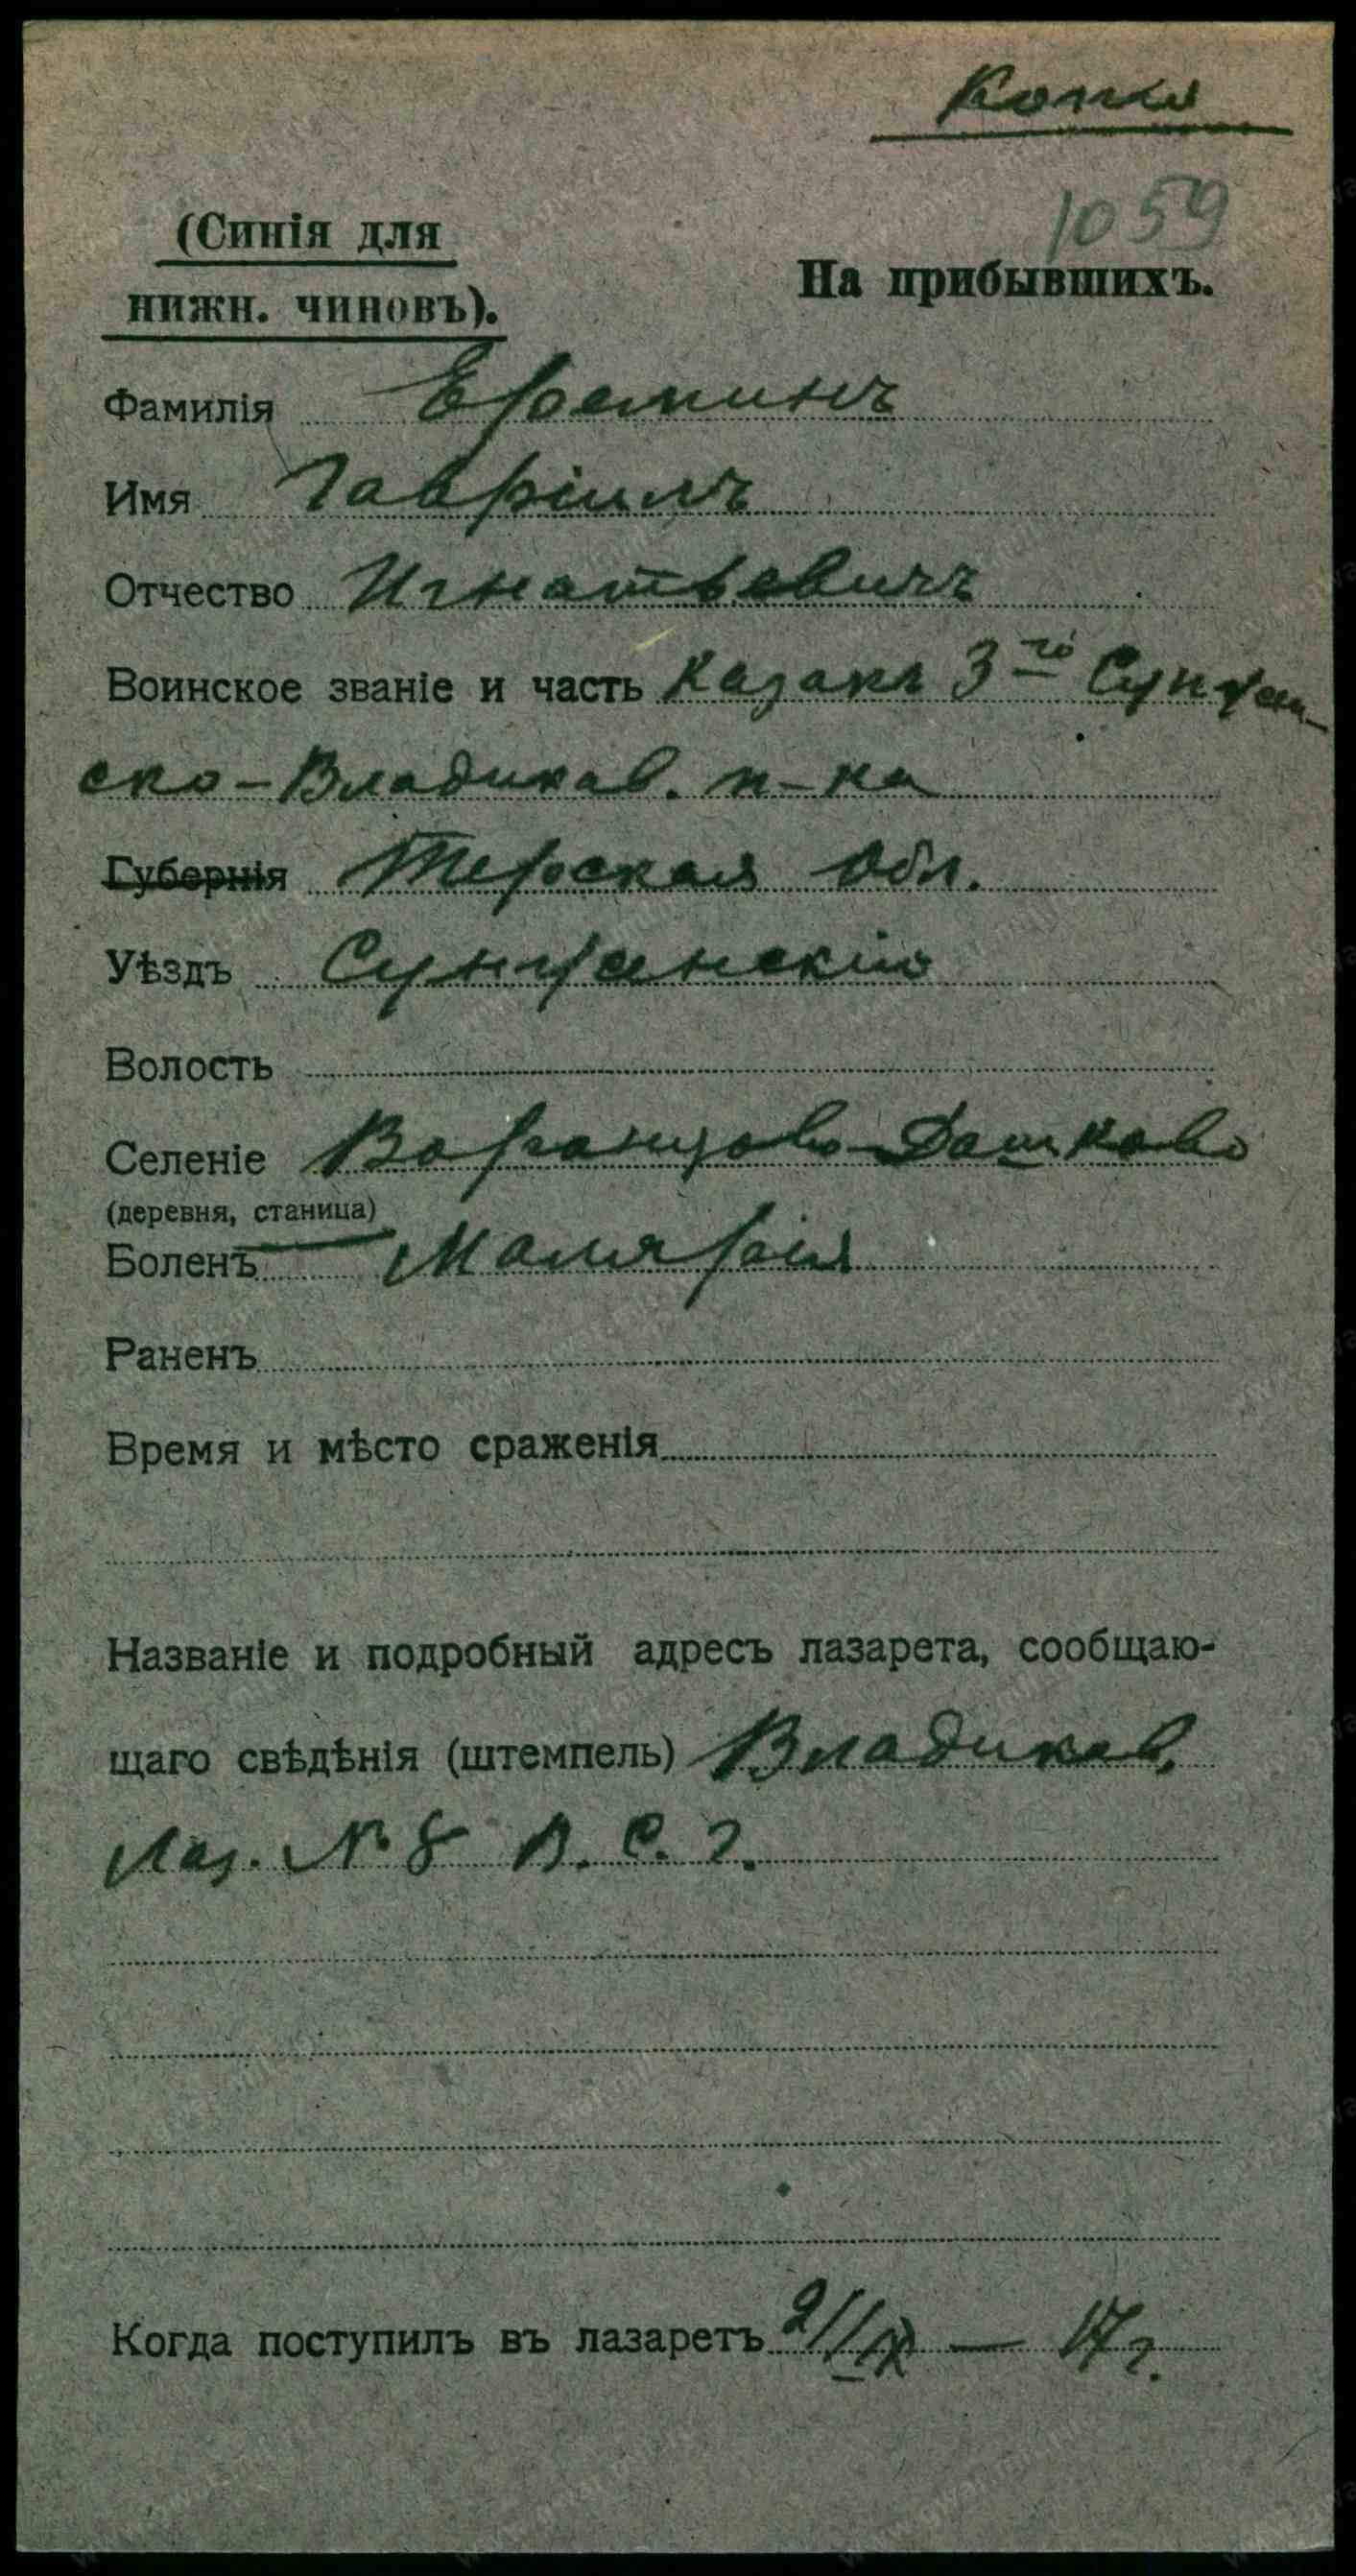 Копия
1059
(Синія для
нижн. чиновъ).
На прибывшихъ.
Фамилія Ереминъ
Имя Гавріилъ
Отчество Игнатьевичъ
Воинское званіе и часть Казакъ 3го Сунжен-
ско-Владикав. п-ка
Губернія Терская Обл.
Уѣздъ Сунженскій
Волость
Селеніе Воронцово-Дашково
(деревня, станица)
Боленъ Малярія
Раненъ
Время и мѣсто сраженія
Названіе и подробный адресъ лазарета, сообщаю-
щаго свѣдѣнія (штемпель) Владикав.
Лаз. № 8 В. С. Г.
Когда поступилъ въ лазаретъ 2/IX — 17 г.